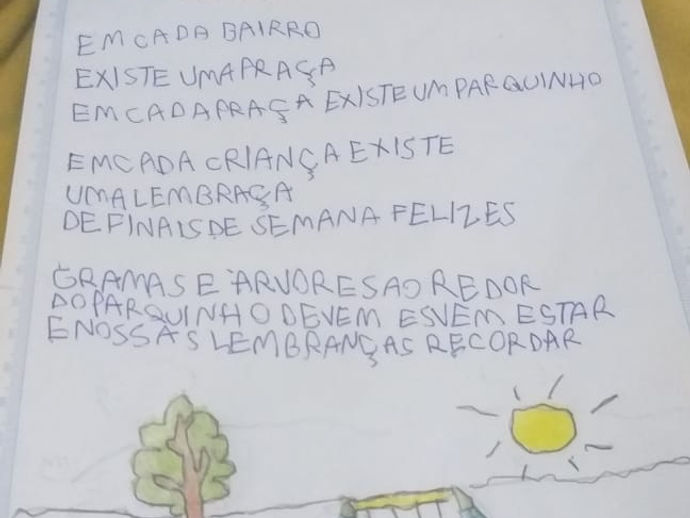 EM CADA BAIRRO
EXISTE UMA PRAÇA
EM CADA PRAÇA EXISTE UM PARQUINHO
EM CADA CRIANÇA EXISTE
UMA LEMBRAÇA
DE FINAIS DE SEMANA FELIZES
GRAMAS E ÀRVORES AO REDOR
DO PARQUINHO DEVEM ESVEM ESTAR
E NOSSAS LEMBRANÇAS RECORDAR